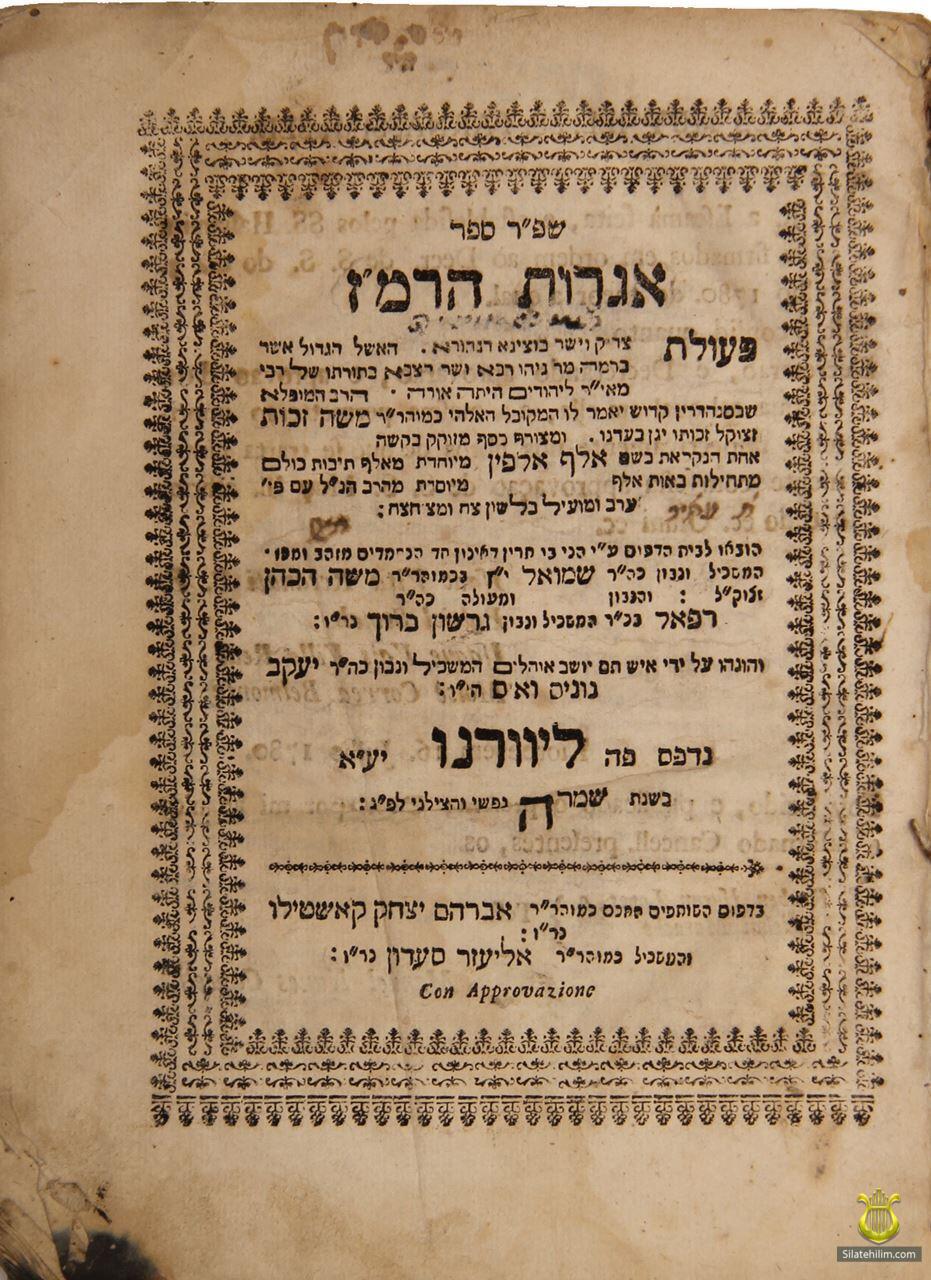 שפ״ר ספר
אגרות הרמ״ז
פעולת צדיק וישר בוצינא דנהורא. האשל הגדול אשר
ברמה מר ניהו רבא ושר רצבא בתורתו של רבי
מאי״ר ליהודים היתה אורה · הרב המופלא
שבסנהדרין קדוש יאמר לו המקובל האלהי כמוהר״ר משה זכות
זצוקל זכותו יגן בעדנו. ומצורף כסף מזוקק בקשה
אחת הנקראת בשם אלף אלפין מיוחדת מאלף תיבות כולם
מתחילות באות אלף מיוסדת מהרב הנ״ל עם פי׳
ערב ומועיל בלשון צח ומצחצח:
הוצאו לבית הדפוס ע״י הני בי תרין דאינון חד הנחמדים מזהב ומפז·
המשכיל ונבון כה״ר שמואל י״ן בכמוהר״ר משה הכהן
זצוק״ל : והנבון ומעולה כה״ר
רפאל בכ״ר המשכיל ונבון גרשון ברוך נר״ו:
והוגהו על ידי איש תם יושב אוהלים המשכיל ונבון כה״ר יעקב
נוניס ואים הי״ו:
נדפס פה ליוורנו יע״א
בשנת שמרה נפשי והצילני לפ״ג:
בדפוס השותפים החכם כמוהר״ר אברהם יצחק קאשטילו
נר״ו:
והמשכיל כמוהר״ר אליעזר סעדון נר״ו:
Con Approvazione
Silatehilim.com